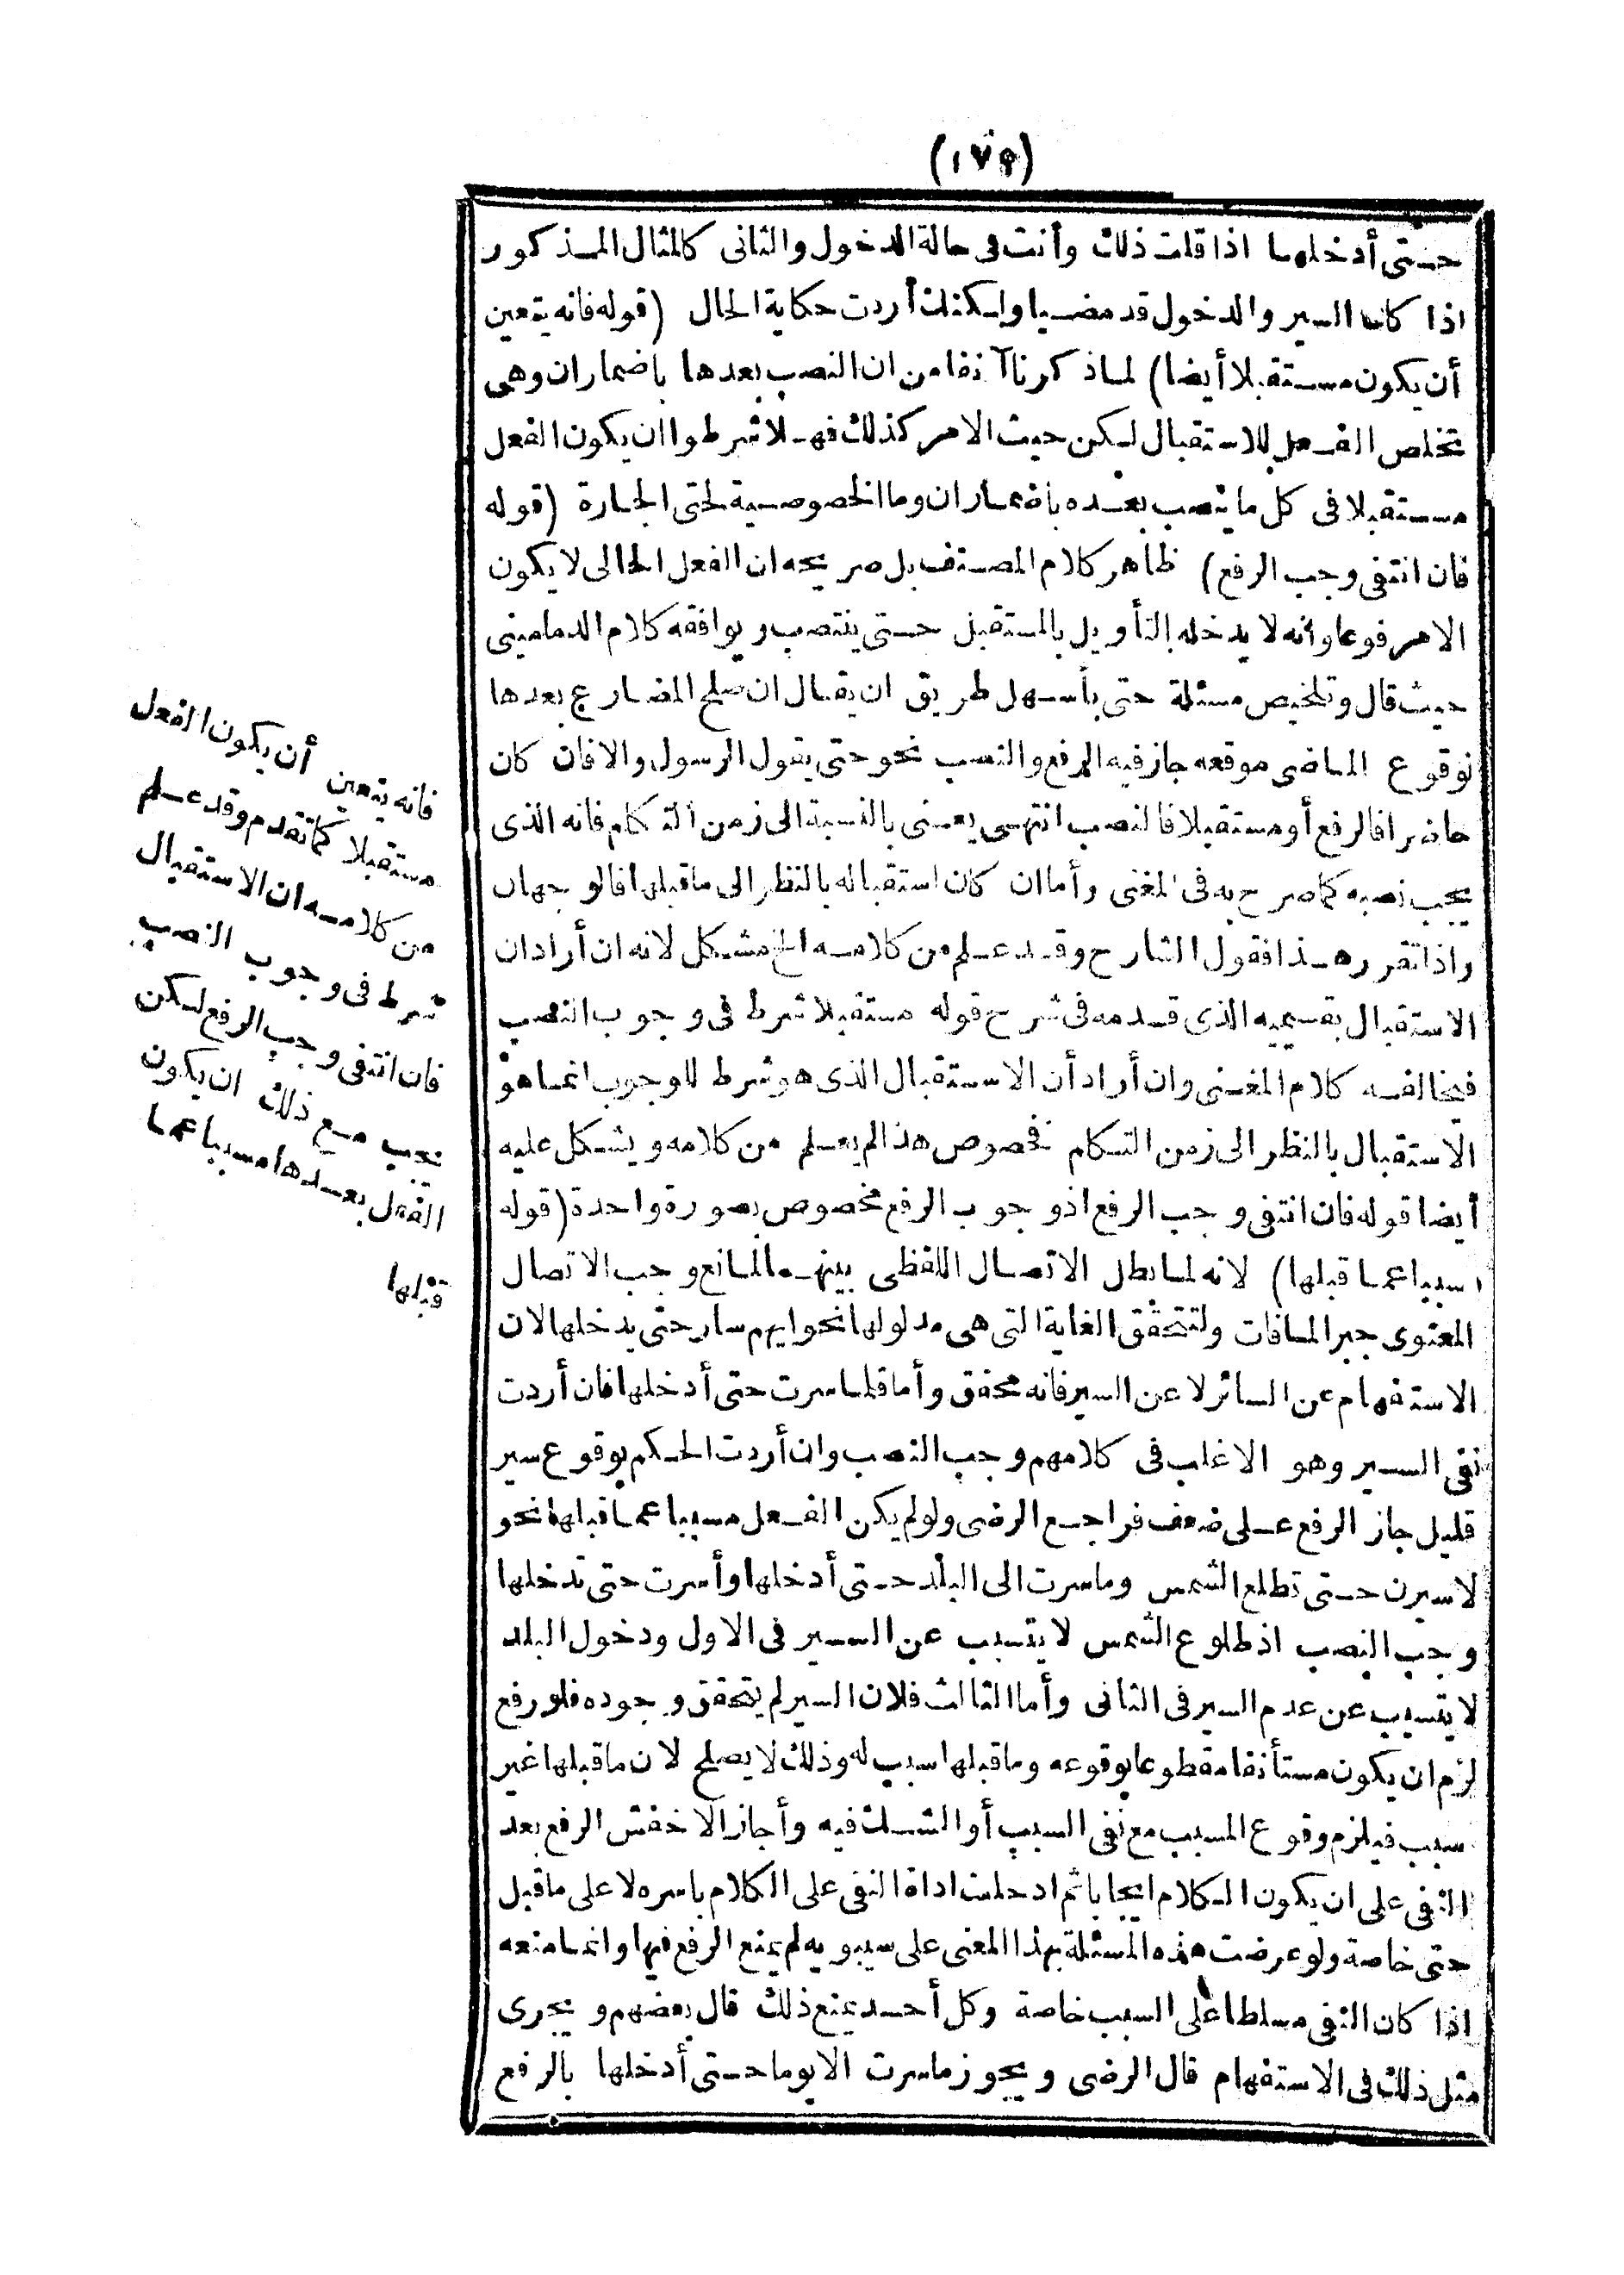 (١٧٩)
حتى أدخلها اذا قلت ذلك وأنت فى حالة الدخول والثانى كالمثال المذكور
اذا كان السير والدخول قد مضيا ولكنك أردت حكاية الحال (قوله فانه يتعين
أن يكون مستقبلا أيضا) لما ذكرنا آنفا من ان النصب بعدها باضمار ان وهى
تخلص الفعل للاستقبال لكن حيث الامر كذلك فهلا شرطوا ان يكون الفعل
مستقبلا فى كل ما ينصب بعده باضمار ان وما الخصوصية لحتى الجارة (قوله
فان انتفى وجب الرفع) ظاهر كلام المصنف بل صريحه ان الفعل الحالى لا يكون
الامر فوعا وأنه لا يدخله التأويل بالمستقبل حتى ينتصب ويوافقه كلام الدمامينى
حيث قال وتلخيص مسئلة حتى بأسهل طريق ان يقال ان صلح المضارع بعدها
لوقوع الماضى موقعه جاز فيه الرفع والنصب نحو حتى يقول الرسول والا فان كان
حاضرا فالرفع أو مستقبلا فالنصب انتهى يعنى بالنسبة الى زمن التكلم فانه الذى
يجب نصبه كما صرح به فى المغنى وأما ان كان استقباله بالنظر الى ما قبلها فالوجهان
واذا تقرر هذا فقول الشارح وقد علم من كلامه الخ مشكل لانه ان أراد ان
الاستقبال بقسميه الذى قدمه فى شرح قوله مستقبلا شرط فى وجوب النصب
فيخالفه كلام المغنى وان أراد أن الاستقبال الذى هو شرط للوجوب انما هو
الاستقبال بالنظر الى زمن التكلم فخصوص هذا لم يعلم من كلامه ويشكل عليه
أيضا قوله فان انتفى وجب الرفع اذ وجوب الرفع مخصوص بصورة واحدة (قوله
مسببا عما قبلها) لانه لما بطل الاتصال اللفظى بينهما لمانع وجب الاتصال
المعنوى جبر المافات ولتتحقق الغاية التى هى مدلولها نحو ايهم سار حتى يدخلها لان
الاستفهام عن السائر لا عن السير فانه محقق وأما قلما سرت حتى أدخلها فان أردت
نفى السير وهو الاغلب فى كلامهم وجب النصب وان أردت الحكم بوقوع سير
قليل جاز الرفع على ضعف فراجع الرضى ولو لم يكن الفعل مسببا عما قبلها نحو
لاسيرن حتى تطلع الشمس وما سرت الى البلد حتى أدخلها وأسرت حتى تدخلها
وجب النصب اذ طلوع الشمس لا يتسبب عن السير فى الاول ودخول البلد
لا يتسبب عن عدم السير فى الثانى وأما الثالث فلان السير لم يتحقق وجوده فلو رفع
لزم ان يكون مستأنفا مقطوعا بوقوعه وما قبلها سبب له وذلك لا يصلح لان ما قبلها غير
سبب فيلزم وقوع المسبب مع نفى السبب أو الشك فيه وأجاز الاخفش الرفع بعد
النفى على ان يكون الكلام ايجابا ثم ادخلت اداة النفى على الكلام باسره لا على ما قبل
حتى خاصة ولو عرضت هذه المسئلة بهذا المعنى على سيبويه لم يمنع الرفع فيها وانما منعه
اذا كان النفى مسلطا على السبب خاصة وكل أحد يمنع ذلك قال بعضهم ويجرى
مثل ذلك فى الاستفهام قال الرضى ويجوز ما سرت الا يوما حتى أدخلها بالرفع
فانه يتعين أن يكون الفعل
مستقبلا كما تقدم وقد علم
من كلامه ان الاستقبال
شرط فى وجوب النصب
فان انتفى وجب الرفع لكن
يجب مع ذلك ان يكون
الفعل بعدها مسببا عما
قبلها